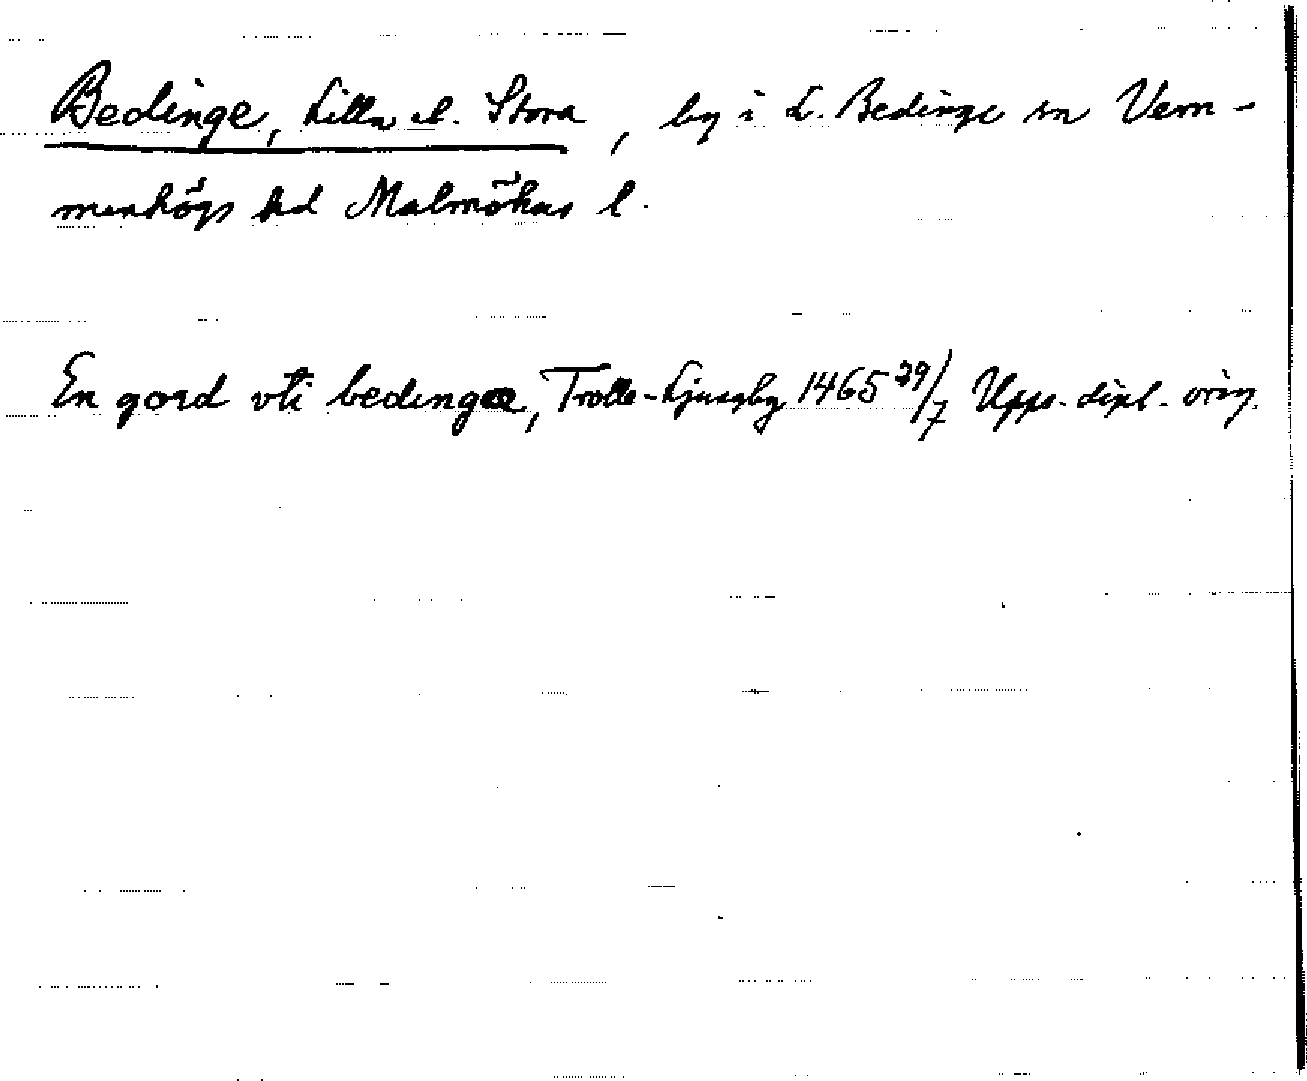 Bedinge, Lilla el. Stora, by i L. Bedinge sn Vem-
menhögs hd Malmöhus l.
En gord vti bedinge, Trolle-Ljungby 1465 29/7 Upps. dipl. orig.